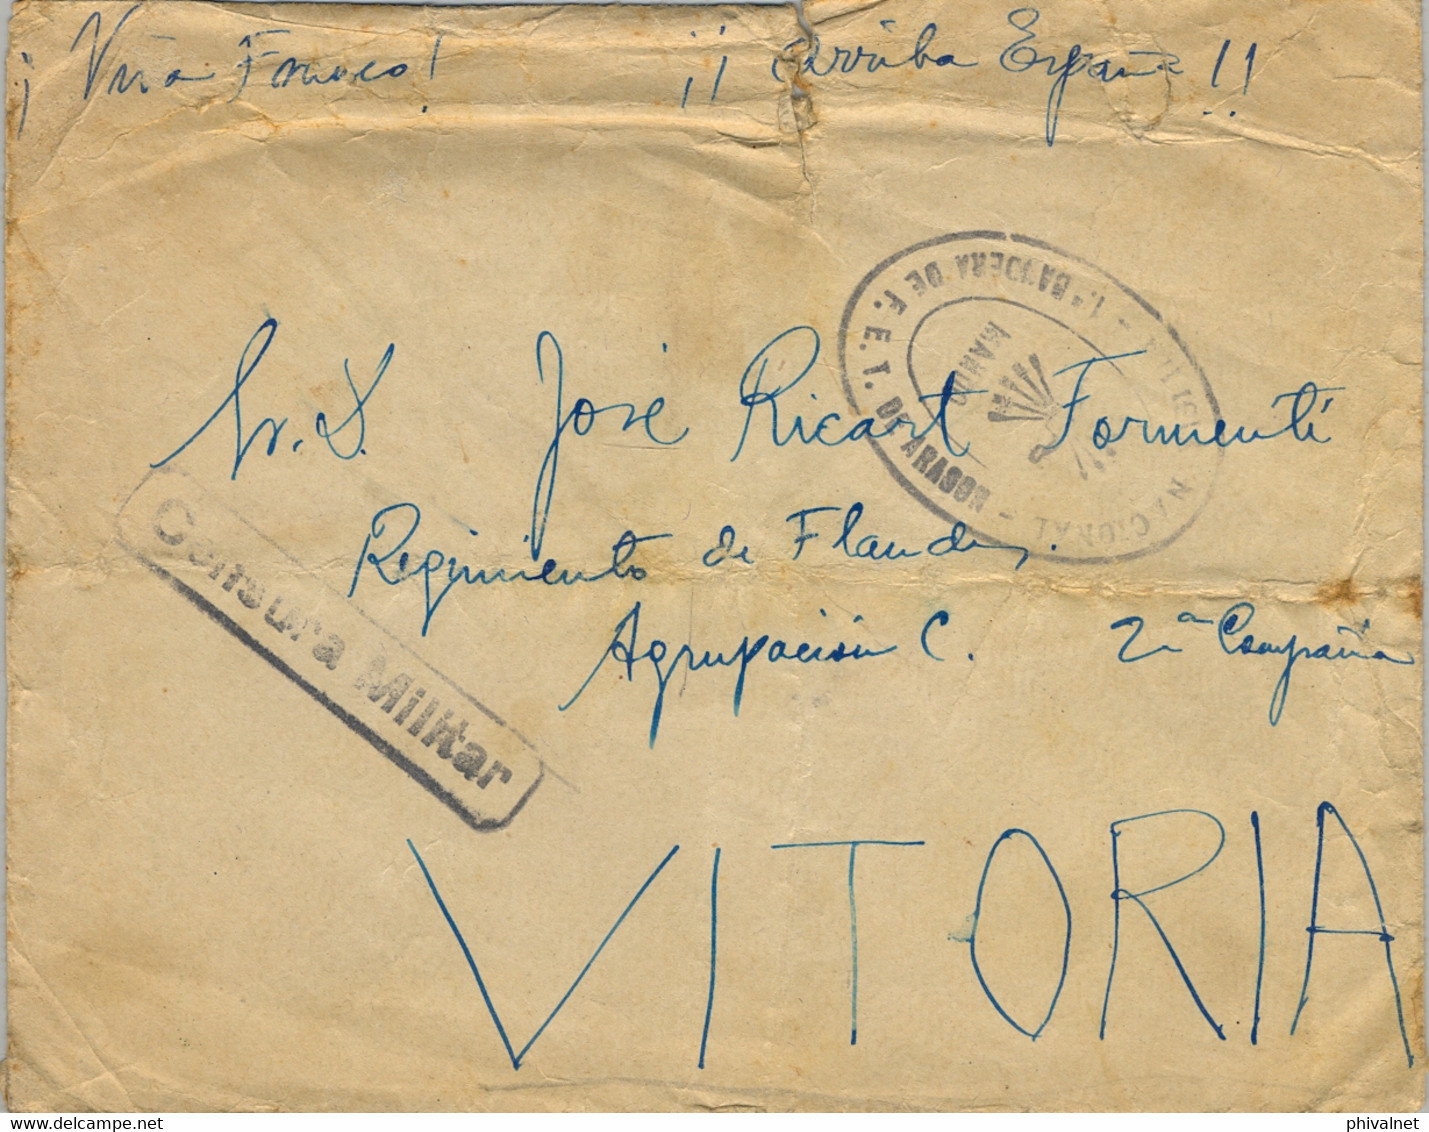 ¡Viva Franco! ¡¡Arriba España!!
1ª BANDERA DE F. E. T. DE ARAGON - MILICIA NACIONAL -
MANDO
Sr. D. José Ricart Formentí
Regimiento de Flandes.
Agrupación C. 2ª Compañia
Censura Militar
VITORIA
delcampe.net
phivalnet